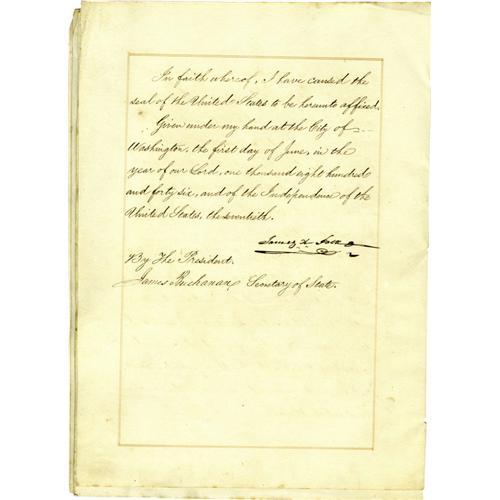 In faith whereof, I have caused the
seal of the United States to be hereunto affixed.
Given under my hand at the City of
Washington, the first day of June, in the
year of our Lord, one thousand eight hundred
and forty six, and of the Independence of the
United States, the seventieth.
James K Polk
By the President.
James Buchanan, Secretary of State.